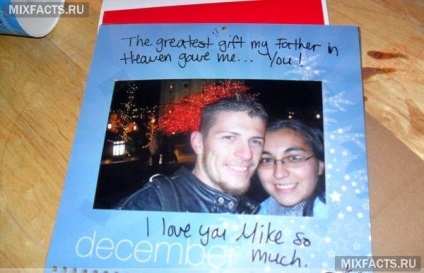 MIXFACTS.RU
The greatest gift my Father in
Heaven gave me... You!
I love you Mike so
much.
december
MIXFACTS.RU